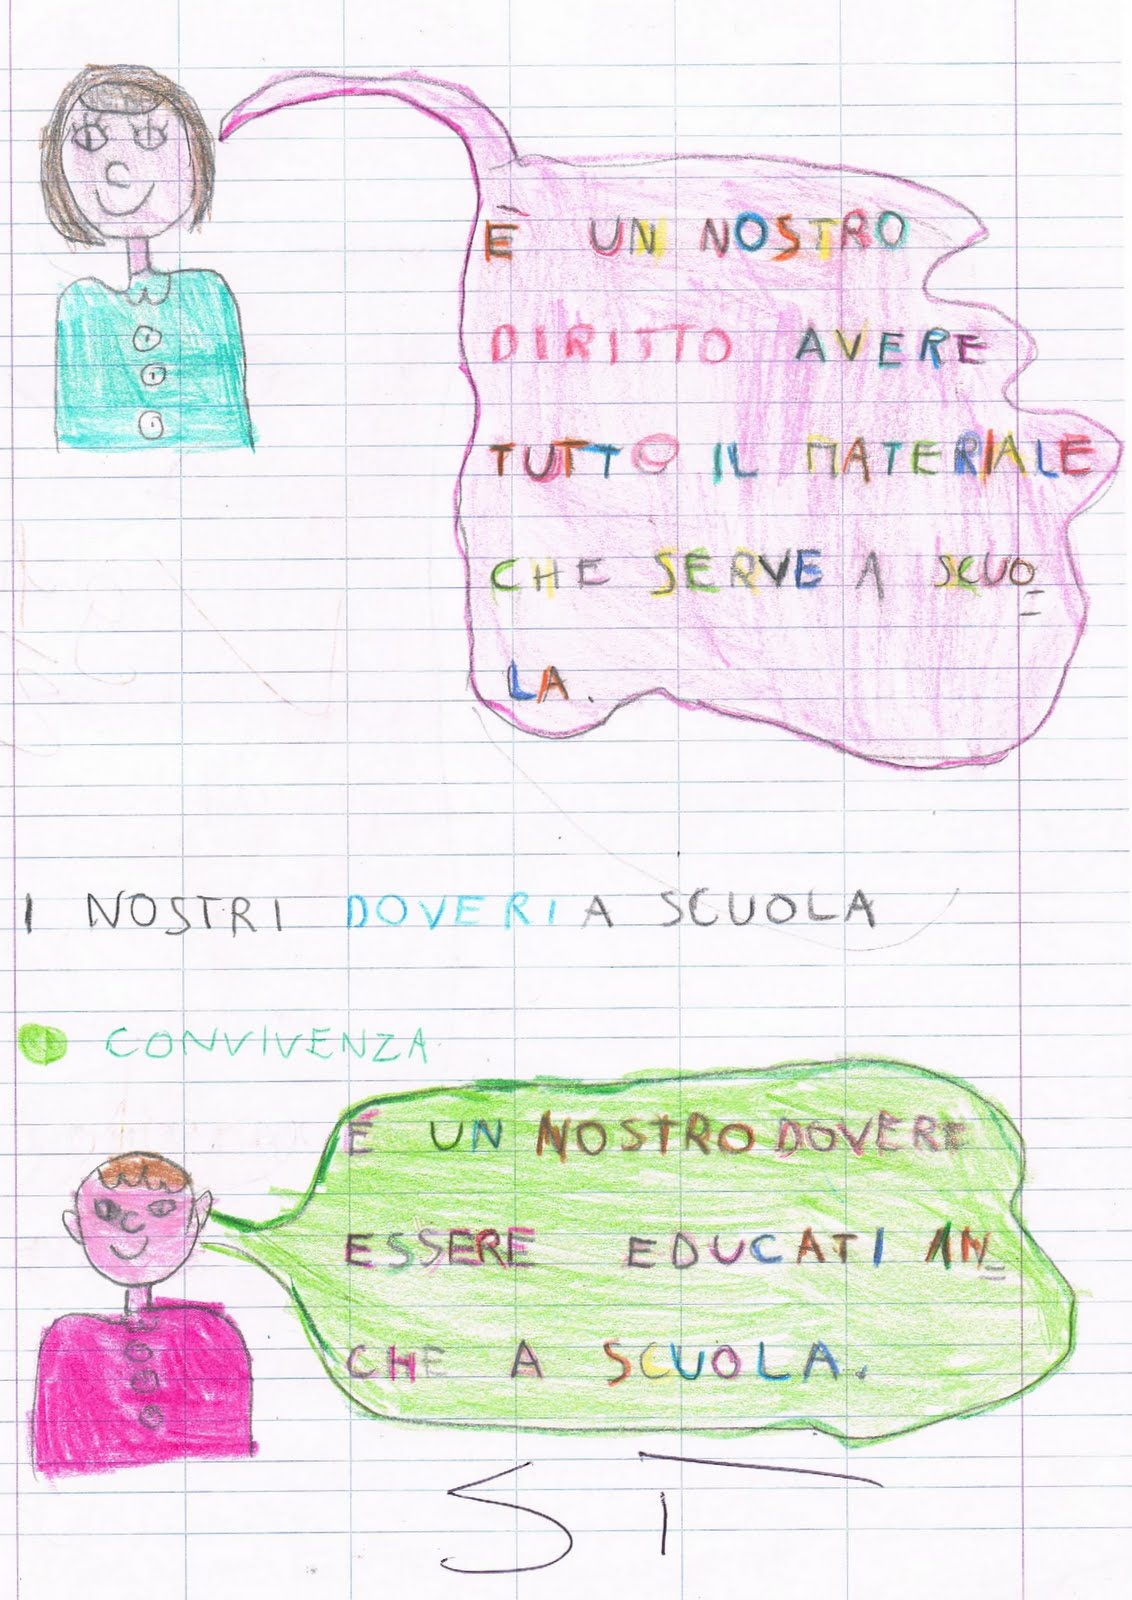 È UN NOSTRO
DIRITTO AVERE
TUTTO IL MATERIALE
CHE SERVE A SCUO=
LA.
I NOSTRI DOVERI A SCUOLA
CONVIVENZA
E UN NOSTRO DOVERE
ESSERE EDUCATI AN=
CHE A SCUOLA.
SI